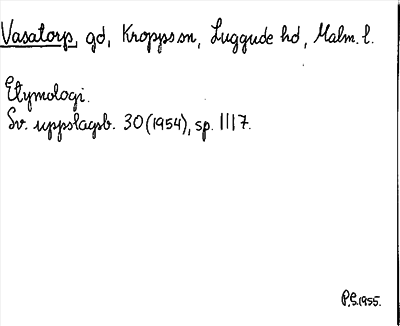 Vasatorp, gd, Kropps sn, Luggude hd, Malm. l.
Etymologi.
Sv. uppslagsb. 30 (1954), sp. 1117.
P.G. 1955.